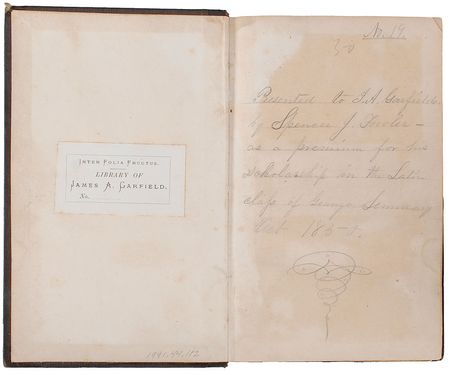 INTER FOLIA FRUCTUS.
LIBRARY OF
JAMES A. GARFIELD.
No.
1991.44.112
No. 19.
50
Presented to J. A. Garfield.
by Spencer J. Fowler –
as a premium for his
scholarship in the Latin
class of Geauga Seminary
Oct. 1850.